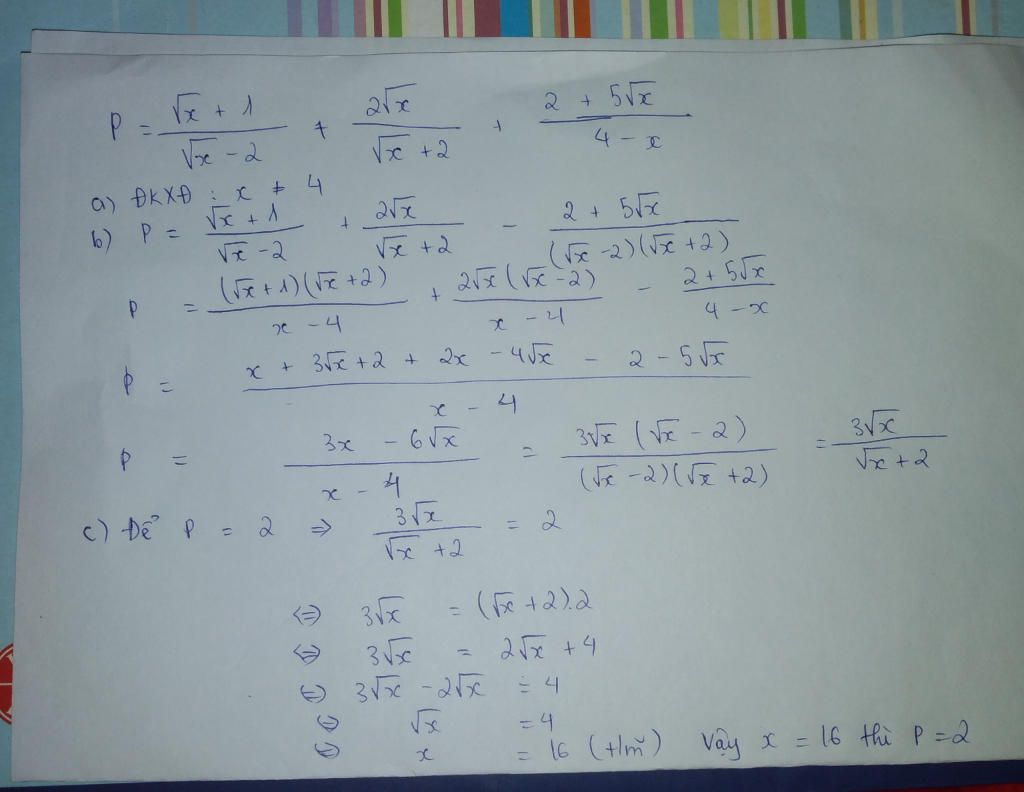 P = (√x + 1)/(√x - 2) + 2√x/(√x + 2) + (2 + 5√x)/(4 - x)
a) ĐKXĐ : x ≠ 4
b) P = (√x + 1)/(√x - 2) + 2√x/(√x + 2) - (2 + 5√x)/((√x - 2)(√x + 2))
P = ((√x + 1)(√x + 2))/(x - 4) + (2√x (√x - 2))/(x - 4) - (2 + 5√x)/(4 - x)
P = (x + 3√x + 2 + 2x - 4√x - 2 - 5√x)/(x - 4)
P = (3x - 6√x)/(x - 4) = (3√x (√x - 2))/((√x - 2)(√x + 2)) = 3√x/(√x + 2)
c) Để P = 2 ⇒ 3√x/(√x + 2) = 2
⇔ 3√x = (√x + 2).2
⇔ 3√x = 2√x + 4
⇔ 3√x - 2√x = 4
⇔ √x = 4
⇔ x = 16 (t/m) Vậy x = 16 thì P = 2